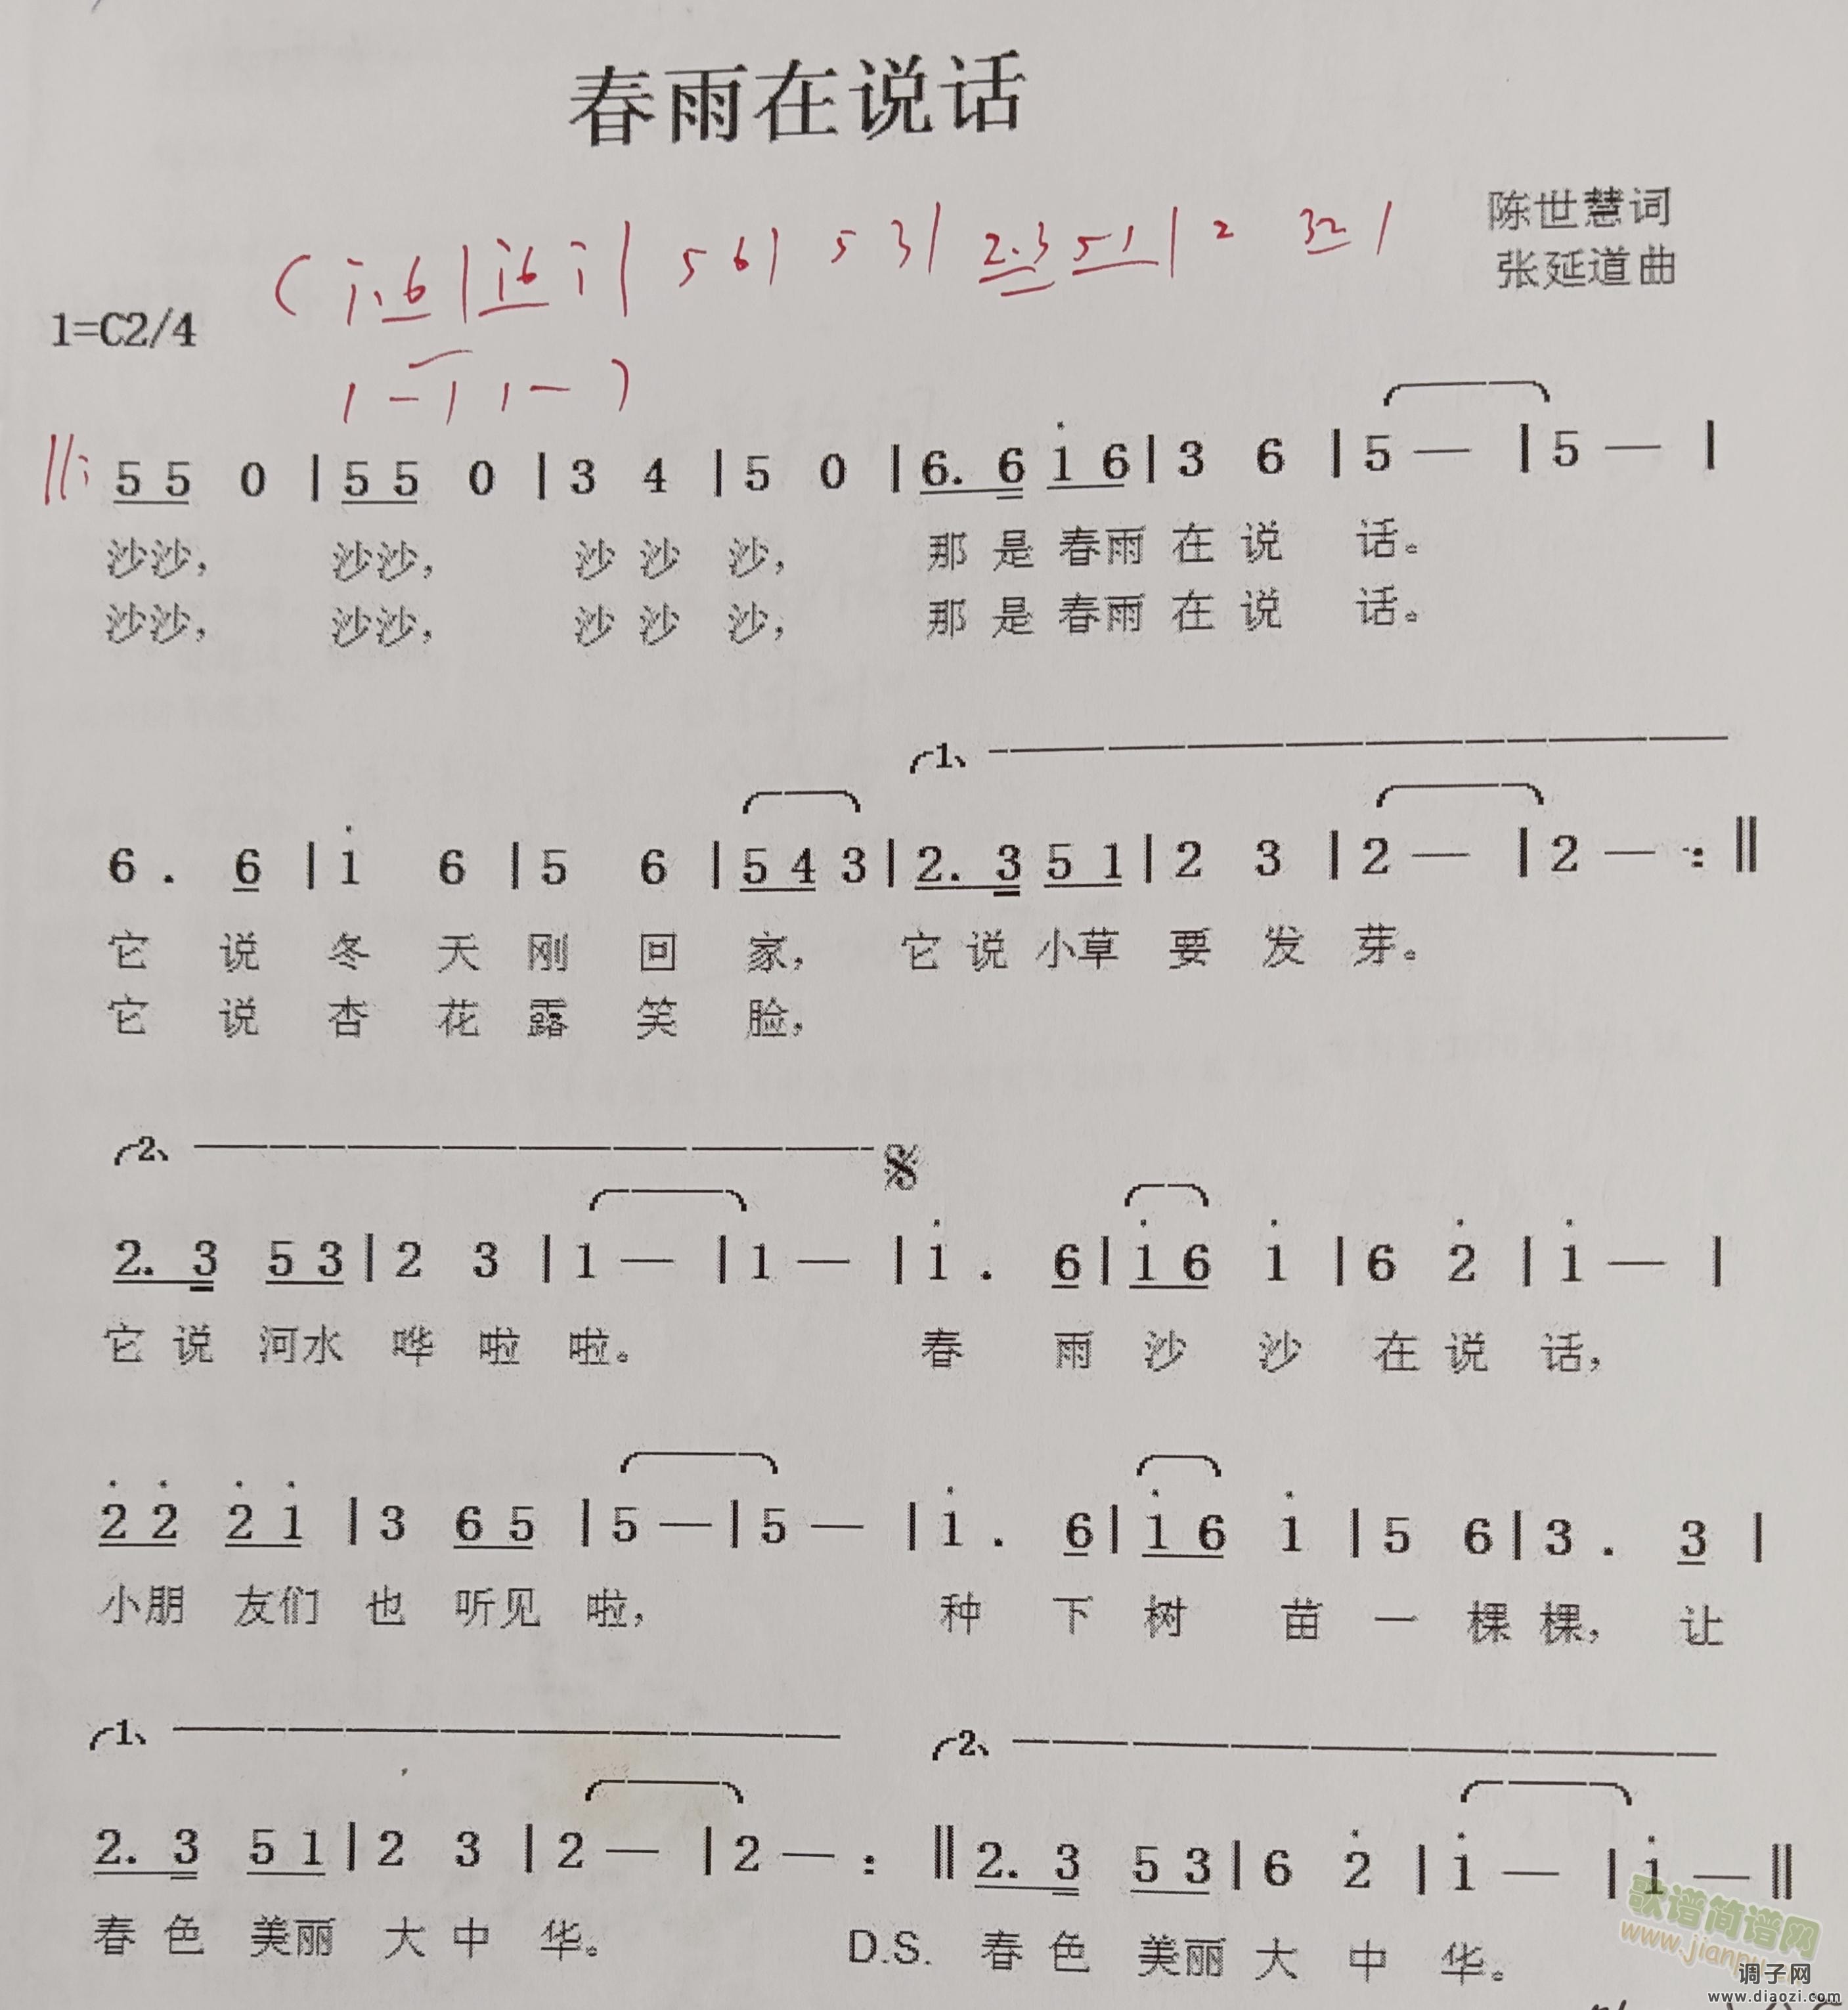 春雨在说话
陈世慧词
张延道曲
1=C2/4
( i. 6 | i6 i | 5 6 | 5 3 | 2.3 51 | 2 32 |
1 — | 1 — )
||: 5 5 0 | 5 5 0 | 3 4 | 5 0 | 6. 6 i 6 | 3 6 | 5 — | 5 — |
沙沙， 沙沙， 沙 沙 沙， 那 是 春雨 在 说 话。
沙沙， 沙沙， 沙 沙 沙， 那 是 春雨 在 说 话。
1、
6 . 6 | i 6 | 5 6 | 5 4 3 | 2. 3 5 1 | 2 3 | 2 — | 2 — :||
它 说 冬 天 刚 回 家， 它 说 小草 要 发 芽。
它 说 杏 花 露 笑 脸，
2、 𝄋
2. 3 5 3 | 2 3 | 1 — | 1 — | i . 6 | i 6 i | 6 2̇ | i — |
它 说 河水 哗 啦 啦。 春 雨 沙 沙 在 说 话，
2̇ 2̇ 2̇ i | 3 6 5 | 5 — | 5 — | i . 6 | i 6 i | 5 6 | 3 . 3 |
小朋 友们 也 听见 啦， 种 下 树 苗 一 棵 棵， 让
1、 2、
2. 3 5 1 | 2 3 | 2 — | 2 — :|| 2. 3 5 3 | 6 2̇ | i — | i — ||
春 色 美丽 大 中 华。 D.S. 春 色 美丽 大 中 华。
歌谱简谱网
调子网
www.diaozi.com